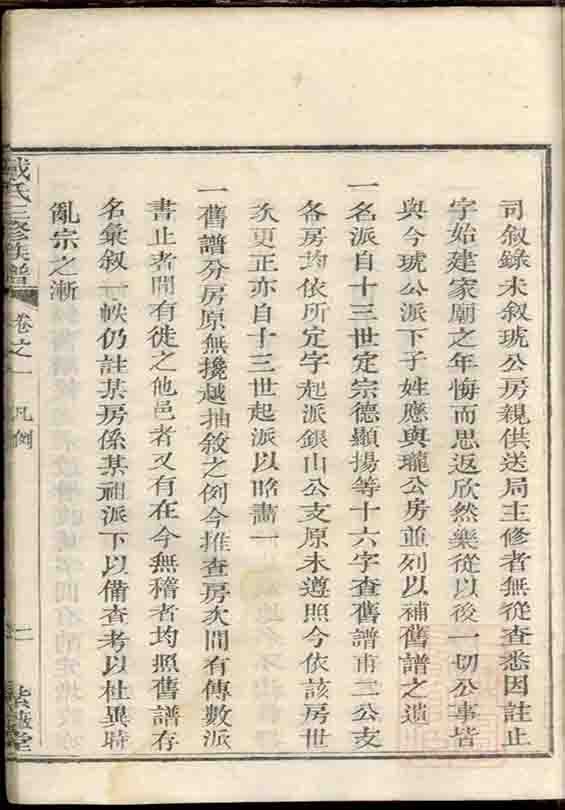 司叙錄未叙琥公房親供送局主修者無從查悉因註止
字始建家廟之年悔而思返欣然樂從以後一切公事皆
與今琥公派下子姓應與瓏公房並列以補舊譜之遺
一名派自十三世定宗德顯揚等十六字查舊譜甫二公支
各房均依所定字起派銀山公支原未遵照今依該房世
次更正亦自十三世起派以昭畫一
一舊譜分房原無攙越抽敘之例今推查房次間有傳數派
書止者間有徙之他邑者又有在今無稽者均照舊譜存
名彙叙一帙仍註某房係某祖派下以備查考以杜異時
亂宗之漸
戴氏三修族譜 卷之一 凡例 二